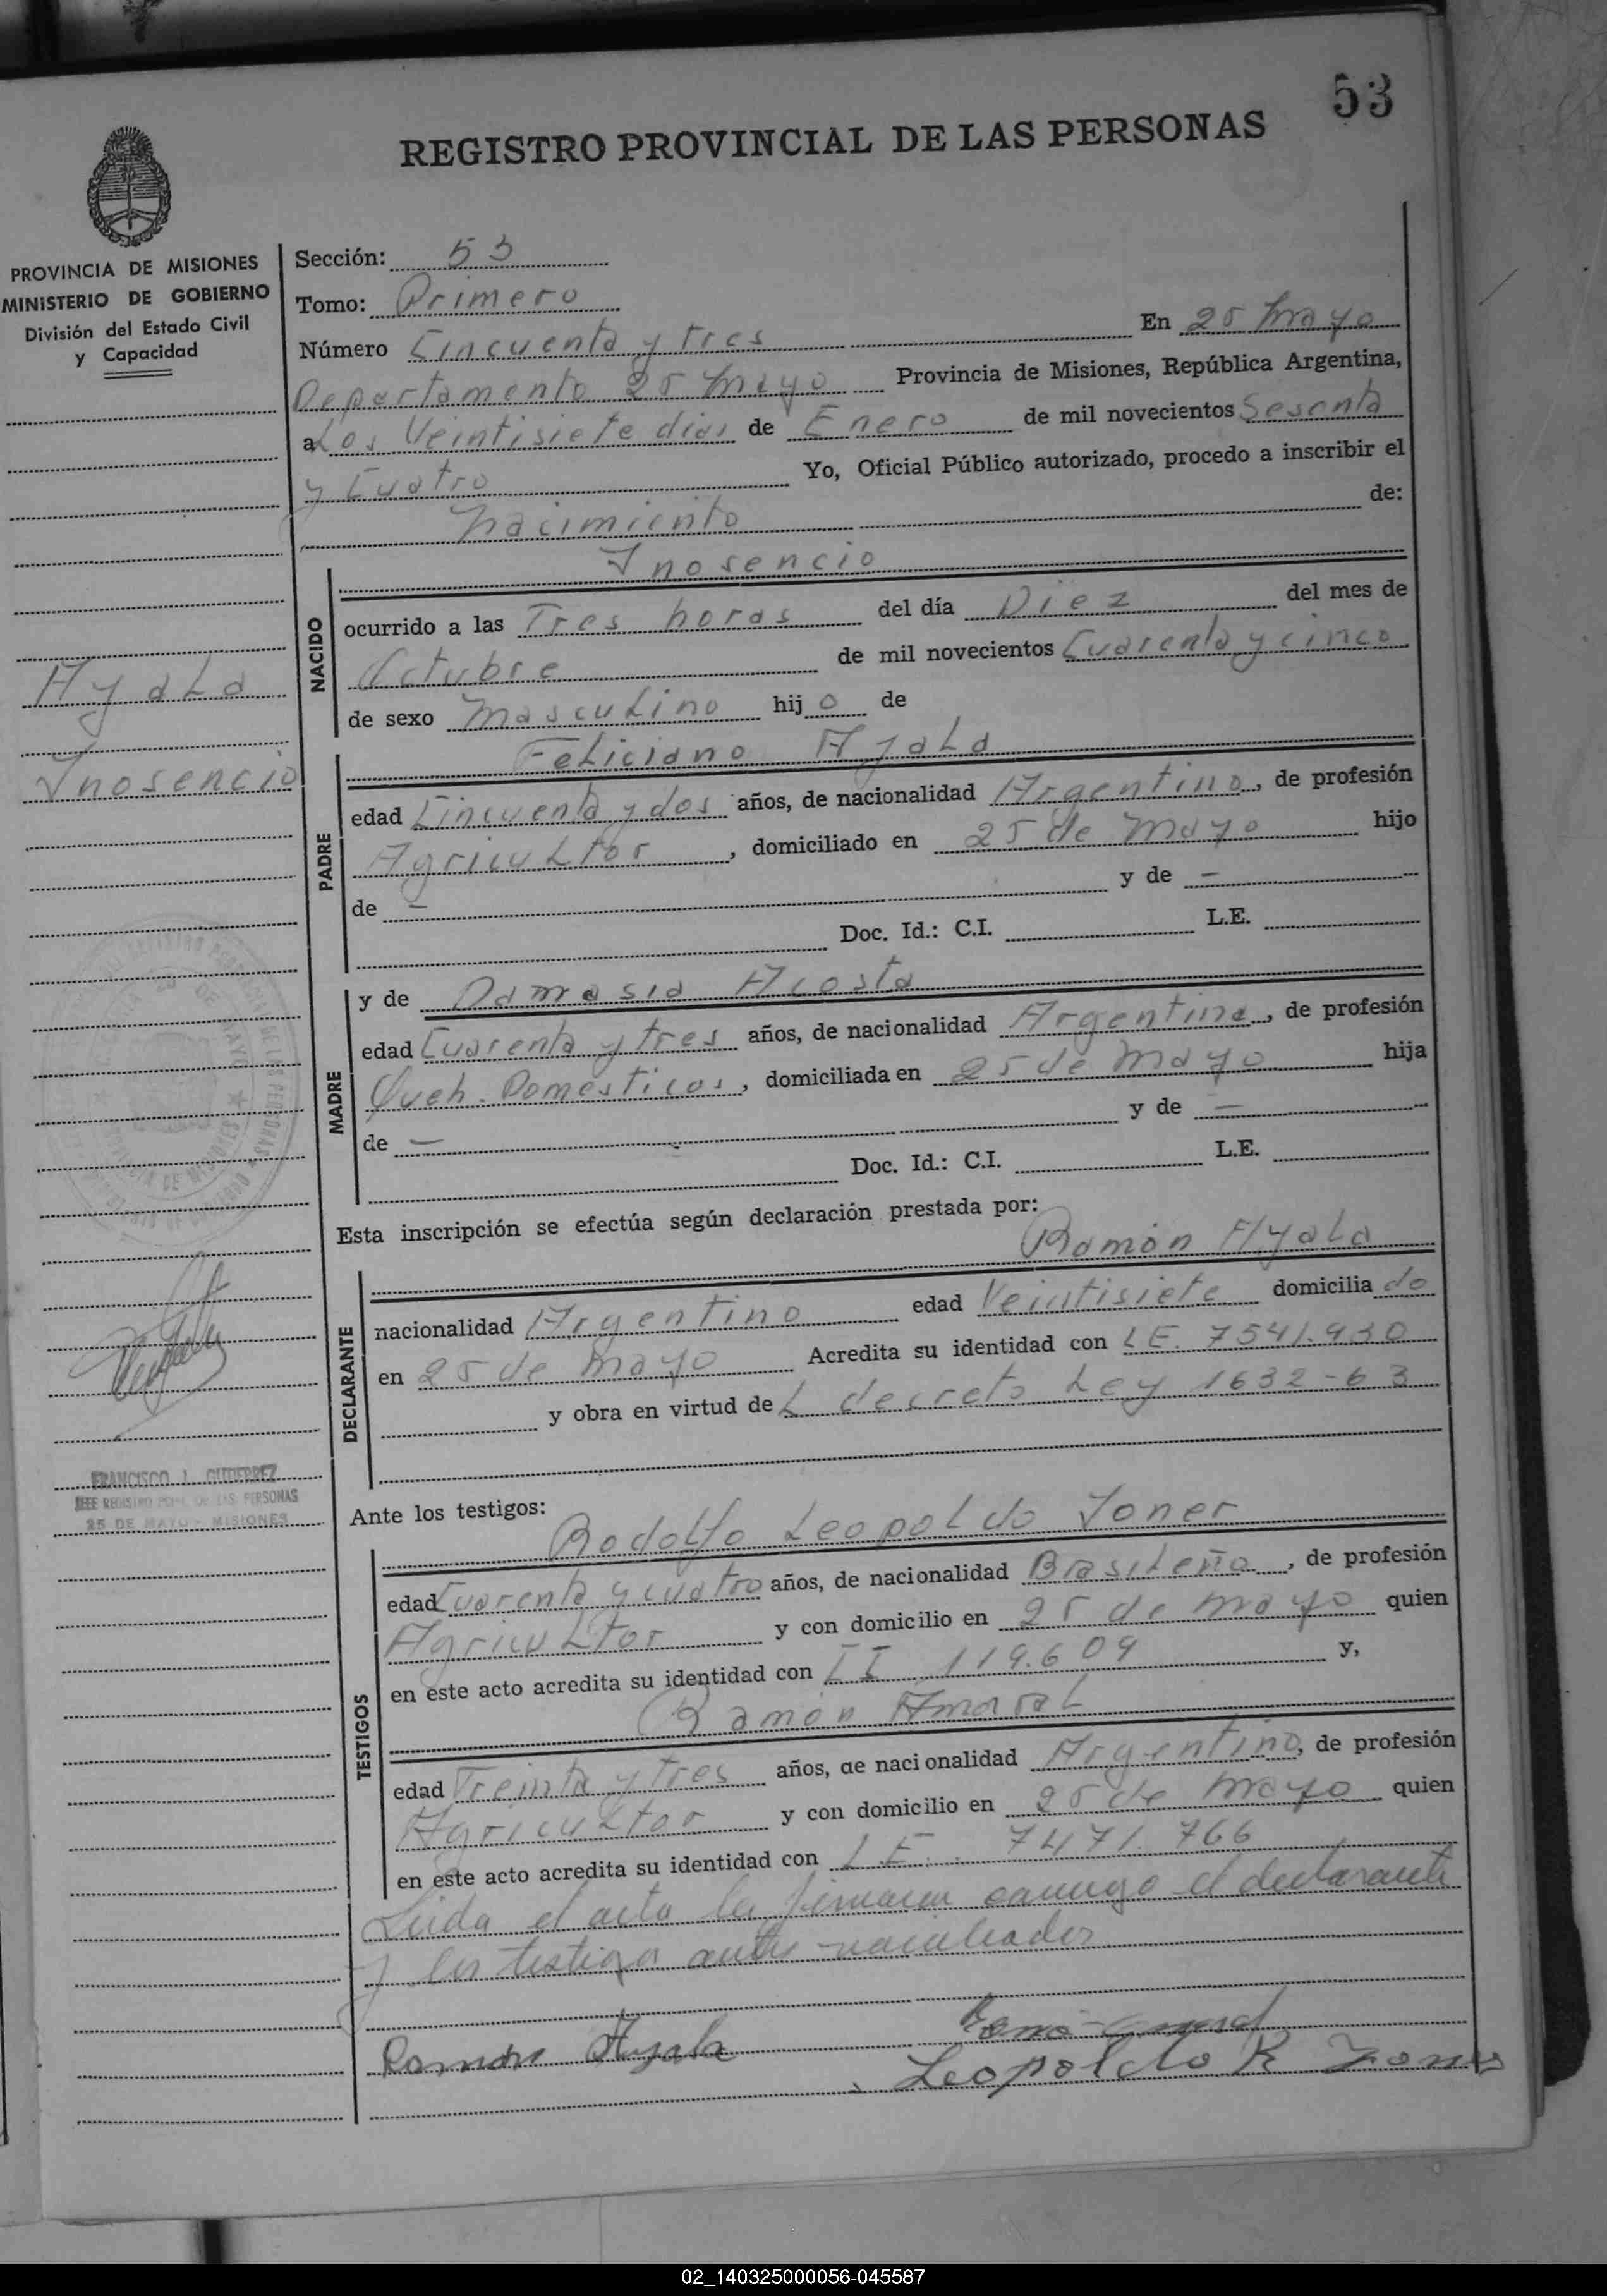 53
REGISTRO PROVINCIAL DE LAS PERSONAS
PROVINCIA DE MISIONES
MINISTERIO DE GOBIERNO
División del Estado Civil
y Capacidad
Sección: 53
Tomo: Primero
Número Cincuenta y tres En 25 Mayo
Departamento 25 Mayo Provincia de Misiones, República Argentina,
a Los Veintisiete dias de Enero de mil novecientos Sesenta
y Cuatro Yo, Oficial Público autorizado, procedo a inscribir el
Nacimiento de:
Inosencio
NACIDO
ocurrido a las Tres horas del día Diez del mes de
Octubre de mil novecientos Cuarenta y cinco
de sexo Masculino hijo de
Ayala
Inosencio
Feliciano Ayala
PADRE
edad Cincuenta y dos años, de nacionalidad Argentino, de profesión
Agricultor, domiciliado en 25 de Mayo hijo
de - y de -
Doc. Id.: C.I. L.E.
y de Damasia Acosta
MADRE
edad Cuarenta y tres años, de nacionalidad Argentina, de profesión
Queh. Domesticos, domiciliada en 25 de Mayo hija
de - y de -
Doc. Id.: C.I. L.E.
Esta inscripción se efectúa según declaración prestada por:
Ramón Ayala
DECLARANTE
nacionalidad Argentino edad Veintisiete domiciliado
en 25 de Mayo Acredita su identidad con L E. 7541.930
y obra en virtud de L decreto Ley 1632-63
FRANCISCO J. GUTIERREZ
JEFE REGISTRO PCIAL DE LAS PERSONAS
25 DE MAYO - MISIONES
Ante los testigos:
Rodolfo Leopoldo Joner
TESTIGOS
edad Cuarenta y cuatro años, de nacionalidad Brasileña, de profesión
Agricultor y con domicilio en 25 de Mayo quien
en este acto acredita su identidad con 119.609 y,
Ramón Amaral
edad Treinta y tres años, de nacionalidad Argentino, de profesión
Agricultor y con domicilio en 25 de Mayo quien
en este acto acredita su identidad con L E. 7471.766
Leida el acta la firman conmigo el declarante
y los testigos antes
Ramón Ayala
Leopoldo R
02_140325000056-045587